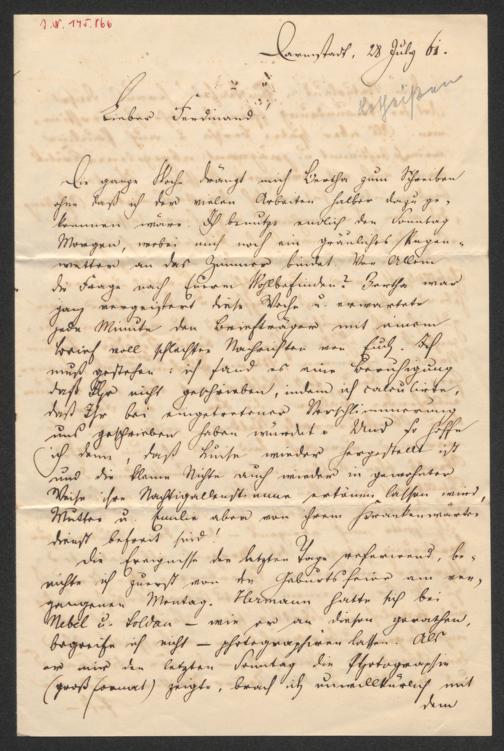 I. N. 175.866
Darmstadt, 28 July 61.
Lieber Ferdinand
Die ganze Woche drängt mich Bertha zum Schreiben
ohne daß ich der vielen Arbeiten halber dazu ge-
kommen wäre. Ich benutze endlich den Sonntag
Morgen, wobei mich noch ein gräuliches Regen-
wetter an das Zimmer bindet. Vor Allem
die Frage nach Eurem Wohlbefinden? Bertha war
ganz vergeistert diese Woche u. erwartete
jede Minute den Briefträger mit einem
Brief voll schlechter Nachrichten von Euch. Ich
muß gestehen: ich fand es eine Beruhigung
daß Ihr nicht geschrieben, indem ich calculirte,
daß Ihr bei eingetretener Verschlimmerung
uns geschrieben haben würdet. Und so hoffe
ich denn, daß Luise wieder hergestellt ist
und die kleine Nichte auch wieder in gewohnter
Weise ihre Nachtigallenstimme ertönen lassen wird,
Mutter u. Emilie aber von ihrem Krankenwärter-
dienst befreit sind!
Die Ereignisse der letzten Tage referirend, be-
richte ich zuerst von der Geburtsfeier am ver-
gangenen Montag. Hermann hatte sich bei
Nebel u. Soldan – wie er an diesen gerathen,
begreife ich nicht – photographiren lassen. Als
er mir den letzten Sonntag die Photographie
(groß Format) zeigte, brach ich unwillkürlich mit
dem